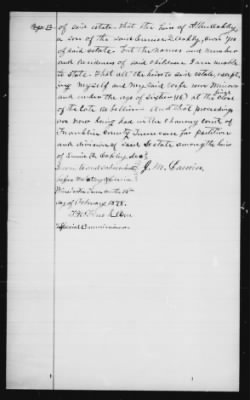 Page 13 of said estate. That the heirs of Allen Oakley,
a son of the said Eunice D. Oakley, own 1/40
of said estate, but the names and number
and residences of said children I am unable
to State. That all the heirs to said estate, except-
ing myself and my said wife were Minors
and under the age of sixteen (16) at the close
of the late Rebellion. And that proceedings
are now being had in the chancery court of
Franklin County Tennessee for partition
and division of said estate among the heirs
of Eunice D. Oakley, decd.
Sworn to and subscribed
before me at my office in
Winchester Tenn on the
day of February 1878.
Special Commissioner